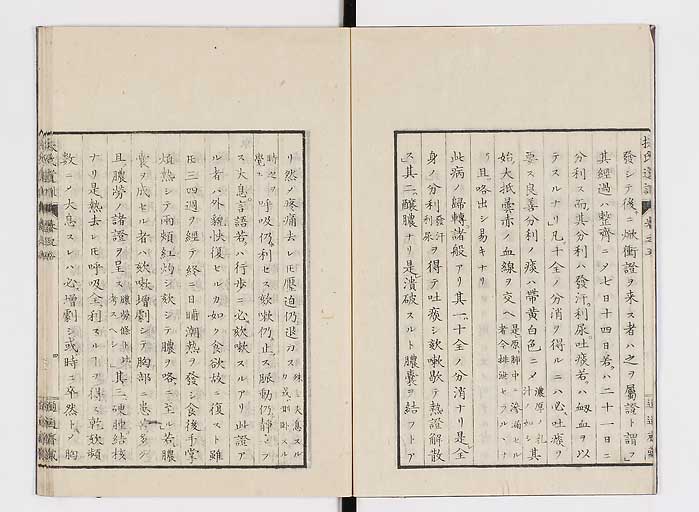 發シテ後ニ焮衝證ヲ来ス者ハ之ヲ屬證ト謂フ
其經過ハ整齊ニノ七日十四日若ハ二十一日ニ
分利ス而其分利ハ發汗利尿吐痰若ハ衂血ヲ以
テスルナリ凡十全ノ分消ヲ得ルニハ必吐痰ヲ
要ス良善分利ノ痰ハ帶黄白色ニノ濃厚ノ乳汁ノ如シ其
始大抵赤ノ血線ヲ交ヘ是原肺中ニ滲漏セル者今排泄セラルヽナ
リ且咯出シ易キナリ
此病ノ歸轉諸般アリ其一十全ノ分消ナリ是全
身ノ分利發汗利尿ヲ得テ吐痰シ欬嗽歇テ熱證解散
ス其二釀膿ナリ是潰破スルト膿嚢ヲ結フトア
リ然ノ疼痛去レ𪜈壓迫仍退カス殊ニ大息スル時之ヲ覺ユ呼吸仍利セス欬嗽仍止ス脈動仍靜ナラ
ス大息言語若ハ行歩ニ必欬嗽スルアリ此證ア
ル者ハ外貌快復セルカ如ク食欲故ニ復スト雖
𪜈三四週ヲ經テ終ニ日晡潮熱ヲ發シ食後手掌
煩熱シテ兩頬紅灼シ欬シテ膿ヲ咯ニ至ル若膿
嚢ヲ成セル者ハ欬嗽増劇シテ胸部ニ患害多ク
且膿勞ノ諸證ヲ呈ス膿勞條考スヘシ其三硬腫結核
ナリ是熱去レ𪜈呼吸全利スルヿヲ得ス乾欬頻
數ニノ大息スレハ必増劇シ或時ニ卒然トノ胸